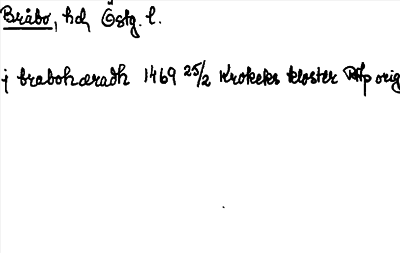 Bråbo, hd, Östg. l.
j brabohæradh 1469 25/2 Krokeks kloster RAp orig